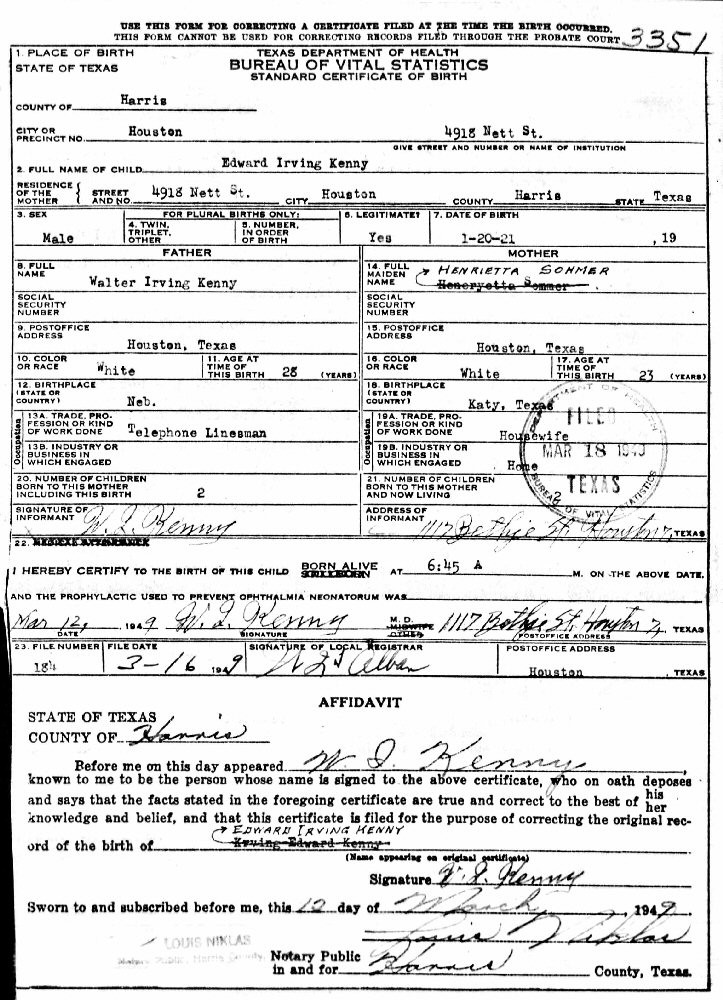 USE THIS FORM FOR CORRECTING A CERTIFICATE FILED AT THE TIME THE BIRTH OCCURRED.
THIS FORM CANNOT BE USED FOR CORRECTING RECORDS FILED THROUGH THE PROBATE COURT
3351
1. PLACE OF BIRTH
STATE OF TEXAS
TEXAS DEPARTMENT OF HEALTH
BUREAU OF VITAL STATISTICS
STANDARD CERTIFICATE OF BIRTH
COUNTY OF Harris
CITY OR PRECINCT NO. Houston 4918 Nett St.
GIVE STREET AND NUMBER OR NAME OF INSTITUTION
2. FULL NAME OF CHILD Edward Irving Kenny
RESIDENCE OF THE MOTHER { STREET AND NO. 4918 Nett St. CITY Houston COUNTY Harris STATE Texas
3. SEX Male
FOR PLURAL BIRTHS ONLY:
4. TWIN, TRIPLET, OTHER
5. NUMBER, IN ORDER OF BIRTH
6. LEGITIMATE? Yes
7. DATE OF BIRTH 1-20-21 , 19
FATHER
8. FULL NAME Walter Irving Kenny
SOCIAL SECURITY NUMBER
9. POSTOFFICE ADDRESS Houston, Texas
10. COLOR OR RACE White
11. AGE AT TIME OF THIS BIRTH 28 (YEARS)
12. BIRTHPLACE (STATE OR COUNTRY) Neb.
Occupation
13A. TRADE, PROFESSION OR KIND OF WORK DONE Telephone Linesman
13B. INDUSTRY OR BUSINESS IN WHICH ENGAGED
20. NUMBER OF CHILDREN BORN TO THIS MOTHER INCLUDING THIS BIRTH 2
MOTHER
14. FULL MAIDEN NAME HENRIETTA SOMMER
Heneryetta Sommer
SOCIAL SECURITY NUMBER
15. POSTOFFICE ADDRESS Houston, Texas
16. COLOR OR RACE White
17. AGE AT TIME OF THIS BIRTH 23 (YEARS)
18. BIRTHPLACE (STATE OR COUNTRY) Katy, Texas
Occupation
19A. TRADE, PROFESSION OR KIND OF WORK DONE Housewife
19B. INDUSTRY OR BUSINESS IN WHICH ENGAGED Home
21. NUMBER OF CHILDREN BORN TO THIS MOTHER AND NOW LIVING 2
DEPARTMENT OF HEALTH
FILED
MAR 18 1949
TEXAS
BUREAU OF VITAL STATISTICS
SIGNATURE OF INFORMANT W. I. Kenny
ADDRESS OF INFORMANT 1117 Bethje St Houston 7, TEXAS
22.
I HEREBY CERTIFY TO THE BIRTH OF THIS CHILD BORN ALIVE STILLBORN AT 6:45 A M. ON THE ABOVE DATE,
AND THE PROPHYLACTIC USED TO PREVENT OPHTHALMIA NEONATORUM WAS
Mar 12, 1949 W. I. Kenny M. D. MIDWIFE OTHER 1117 Bethje St. Houston 7, TEXAS
DATE SIGNATURE POSTOFFICE ADDRESS
23. FILE NUMBER 184
FILE DATE 3-16 1949
SIGNATURE OF LOCAL REGISTRAR
POSTOFFICE ADDRESS Houston , TEXAS
AFFIDAVIT
STATE OF TEXAS
COUNTY OF Harris
Before me on this day appeared W. I. Kenny ,
known to me to be the person whose name is signed to the above certificate, who on oath deposes
and says that the facts stated in the foregoing certificate are true and correct to the best of his her
knowledge and belief, and that this certificate is filed for the purpose of correcting the original rec-
EDWARD IRVING KENNY
ord of the birth of Irving Edward Kenny
(Name appearing on original certificate)
Signature W. I. Kenny
Sworn to and subscribed before me, this 12 day of March , 1949
Louis Niklas
LOUIS NIKLAS
Notary Public, Harris County,
Notary Public in and for Harris County, Texas.